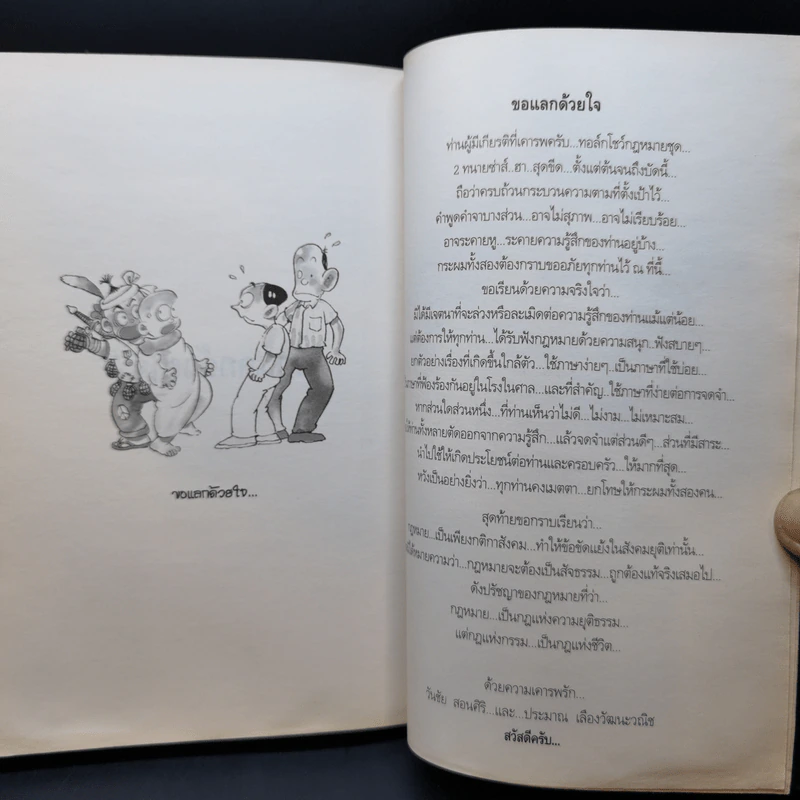 ขอแลกด้วยใจ...
ขอแลกด้วยใจ
ท่านผู้มีเกียรติที่เคารพครับ...ทอล์กโชว์กฎหมายชุด...
2 ทนายซ่าส์..ฮา..สุดขีด...ตั้งแต่ต้นจนถึงบัดนี้...
ถือว่าครบถ้วนกระบวนความตามที่ตั้งเป้าไว้...
คำพูดคำจาบางส่วน...อาจไม่สุภาพ...อาจไม่เรียบร้อย...
อาจระคายหู...ระคายความรู้สึกของท่านอยู่บ้าง...
กระผมทั้งสองต้องกราบขออภัยทุกท่านไว้ ณ ที่นี้...
ขอเรียนด้วยความจริงใจว่า...
มิได้มีเจตนาที่จะล่วงหรือละเมิดต่อความรู้สึกของท่านแม้แต่น้อย...
แต่ต้องการให้ทุกท่าน...ได้รับฟังกฎหมายด้วยความสนุก..ฟังสบายๆ...
ยกตัวอย่างเรื่องที่เกิดขึ้นใกล้ตัว...ใช้ภาษาง่ายๆ...เป็นภาษาที่ใช้บ่อย...
ภาษาที่ฟ้องร้องกันอยู่ในโรงในศาล...และที่สำคัญ..ใช้ภาษาที่ง่ายต่อการจดจำ...
หากส่วนใดส่วนหนึ่ง...ที่ท่านเห็นว่าไม่ดี...ไม่งาม...ไม่เหมาะสม...
ให้ท่านทั้งหลายตัดออกจากความรู้สึก...แล้วจดจำแต่ส่วนดีๆ...ส่วนที่มีสาระ...
นำไปใช้ให้เกิดประโยชน์ต่อท่านและครอบครัว...ให้มากที่สุด...
หวังเป็นอย่างยิ่งว่า...ทุกท่านคงเมตตา...ยกโทษให้กระผมทั้งสองคน...
สุดท้ายขอกราบเรียนว่า...
กฎหมาย...เป็นเพียงกติกาสังคม...ทำให้ข้อขัดแย้งในสังคมยุติเท่านั้น...
มิได้หมายความว่า...กฎหมายจะต้องเป็นสัจธรรม...ถูกต้องแท้จริงเสมอไป...
ดังปรัชญาของกฎหมายที่ว่า...
กฎหมาย...เป็นกฎแห่งความยุติธรรม...
แต่กฎแห่งกรรม...เป็นกฎแห่งชีวิต...
ด้วยความเคารพรัก...
วันชัย สอนศิริ...และ...ประมาณ เลืองวัฒนะวณิช
สวัสดีครับ...